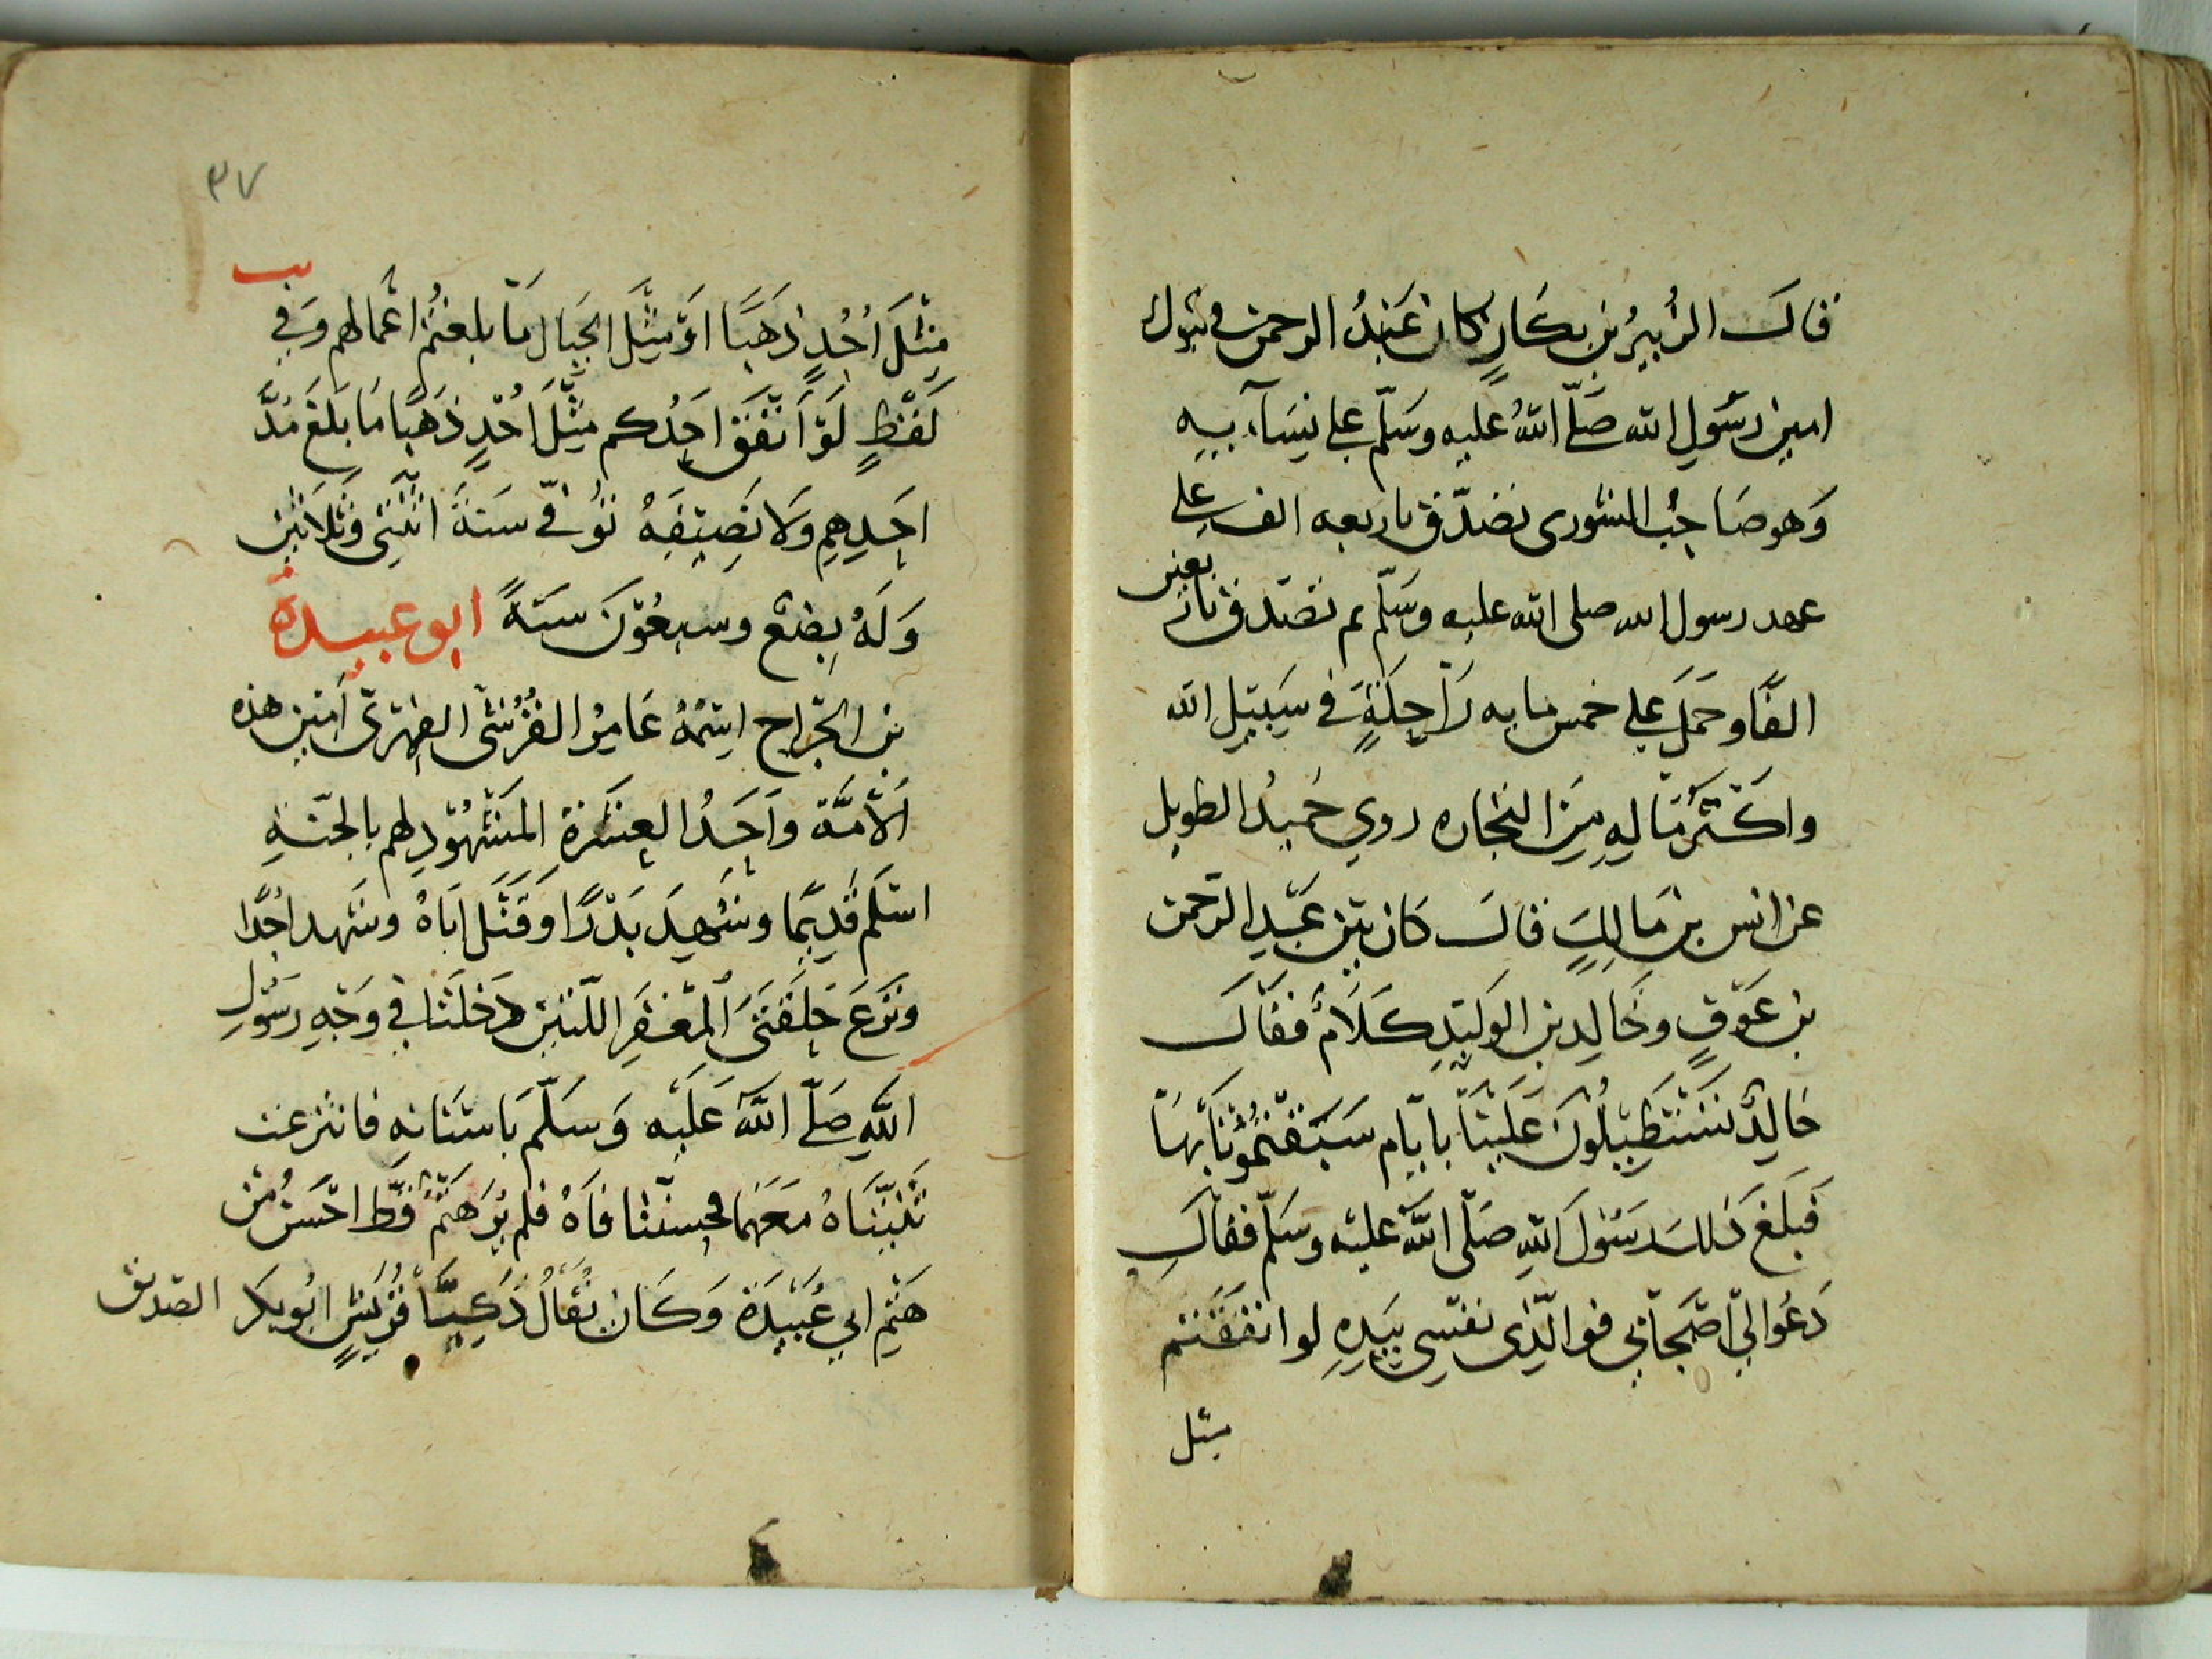 قال الزُبيرُ بن بكَارٍ كان عَبْدُ الرحمن في تبوك
امين رسُولِ الله صَلّى اللهُ عليه وسَلّم على نِسَآءيه
وَهو صَاحِبُ الشورى تصَدّق باربعه الف على
عهد رسول الله صلى الله عليه وسَلّم ثم تصَدق باربعين
الفًا وحَمَلَ على خمس مايه رَاحِلَةٍ في سَبيلِ الله
واكثرُ مَالِهِ مِنَ التجاره روي حُميدُ الطويل
عن انس بن مَالِكٍ قال كان بَيْن عَبْدِ الرّحمن
بن عَوْفٍ وخَالِدِ بن الوَليْدِ كَلَامٌ فقال
خالِدٌ تَسْتَطِيْلُونَ عَلَيْنَا بايّام سَبَقْتُمُوْنَا بِهَا
فَبَلَغَ ذلك رَسُوْلَ اللهِ صَلّى اللهُ عليْه وسَلّم فقال
دَعُوا لِيْ اَصْحَابِي فوالّذِى نفسِى بيَدِهِ لو انفَقْتم
مثل
٣٧
مِثْلَ اُحُدٍ ذهَبًا اوْ مِثْلَ الجِبَال مَا بلغتُمْ اعْمالهم وَفِي
لَفْظٍ لَوْ اَنْفَقَ احَدُكم مِثْلَ اُحُدٍ ذَهَبًا مَا بَلَغَ مُدَّ
احَدِهِم وَلا نَصِيْفَهُ تُوُفّي سَنةَ اثنَتَى وَثلاثيْن
وَلَهُ بِضْعٌ وسبعُوْنَ سَنَةً ابو عبيدة
بن الجَرّاح اسْمُهُ عَامِرُ القُرُشى الفِهْرىّ اَمِيْن هذه
الاُمَّة واَحَدُ العَشَرة المَشْهُوْدِ لهم بالجَنّةِ
اسْلَم قَدِيْمًا وشَهِدَ بَدْرًا وَقَتَل اَبَاهُ وشَهد اُحُدًا
ونَزَعَ حَلَقَتَى المِغْفَرِ اللّتَيْن دَخَلَتَا في وَجْهِ رَسُوْلِ
اللهِ صَلّى اللهُ عَلَيْه وَسَلّمَ باسْنَانِهِ فانتزعت
ثَنِيّتَاهُ مَعَهُمَا فحسنّتا فَاهُ فلم يُرَ هَتْمٌ قَطُّ احْسَنُ مِنْ
هَتْمِ ابي عُبَيْدَة وَكَان يُقالُ ذَكِيَّا قُرَيْشٍ ابُو بكر الصّديق